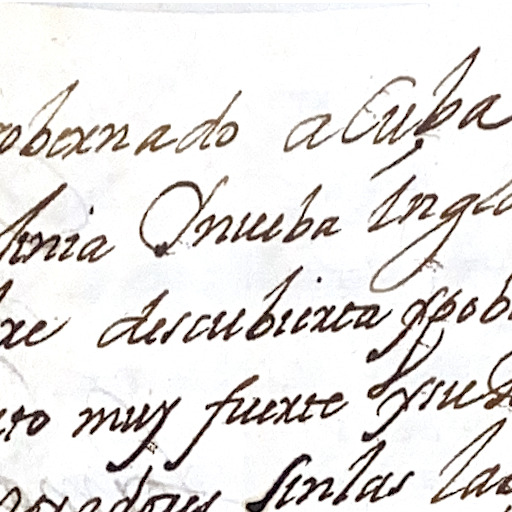 obernado a Cuba
inia Onueba Ingla
re descubierta ypob
to muy fuerte y
adores sinlas la